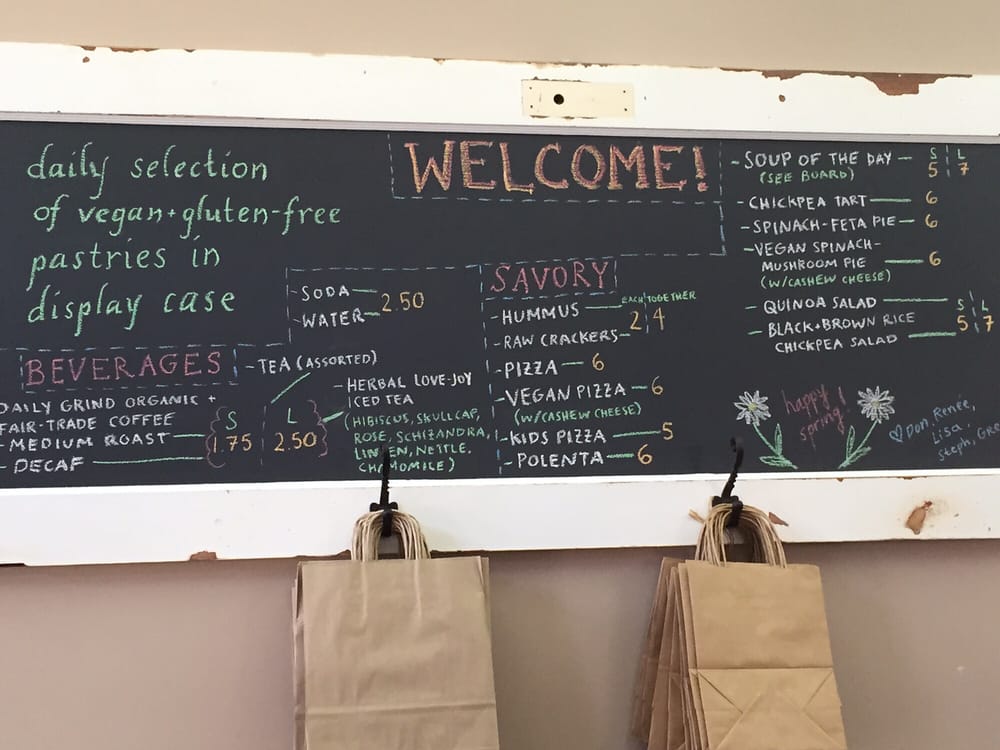 daily selection
of vegan + gluten-free
pastries in
display case
WELCOME!
BEVERAGES
DAILY GRIND ORGANIC +
FAIR-TRADE COFFEE S L
- MEDIUM ROAST 1.75 2.50
- DECAF
- SODA
- WATER 2.50
- TEA (ASSORTED)
- HERBAL LOVE-JOY
ICED TEA
(HIBISCUS, SKULLCAP,
ROSE, SCHIZANDRA,
LINDEN, NETTLE,
CHAMOMILE)
SAVORY
- HUMMUS EACH TOGETHER
- RAW CRACKERS 2 4
- PIZZA 6
- VEGAN PIZZA 6
(W/CASHEW CHEESE)
- KIDS PIZZA 5
- POLENTA 6
- SOUP OF THE DAY S L
(SEE BOARD) 5 7
- CHICKPEA TART 6
- SPINACH-FETA PIE 6
- VEGAN SPINACH-
MUSHROOM PIE 6
(W/CASHEW CHEESE)
- QUINOA SALAD S L
- BLACK + BROWN RICE 5 7
CHICKPEA SALAD
happy
spring!
Don, Renée,
Lisa,
Steph,